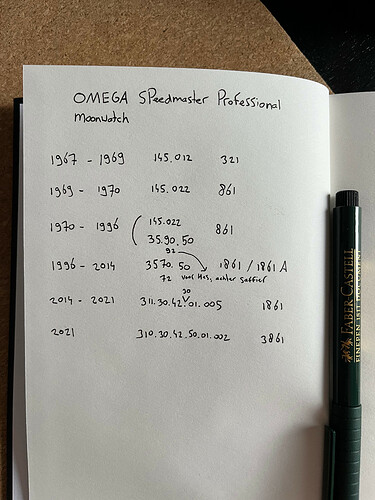 OMEGA SPeedmaster Professional
moonwatch
1967 - 1969 145.012 321
1969 - 1970 145.022 861
1970 - 1996 ( 145.022 861
35.90.50
92
1996 - 2014 3570.50 1861 / 1861 A
72 voor Hes, achter saffier
30
2014 - 2021 311.30.42.01.005 1861
2021 310.30.42.50.01.002 3861
FABER-CASTELL